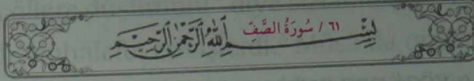 ٦١ / سُورَةُ الصَّفِّ
بِسْمِ اللَّهِ الرَّحْمَٰنِ الرَّحِيمِ